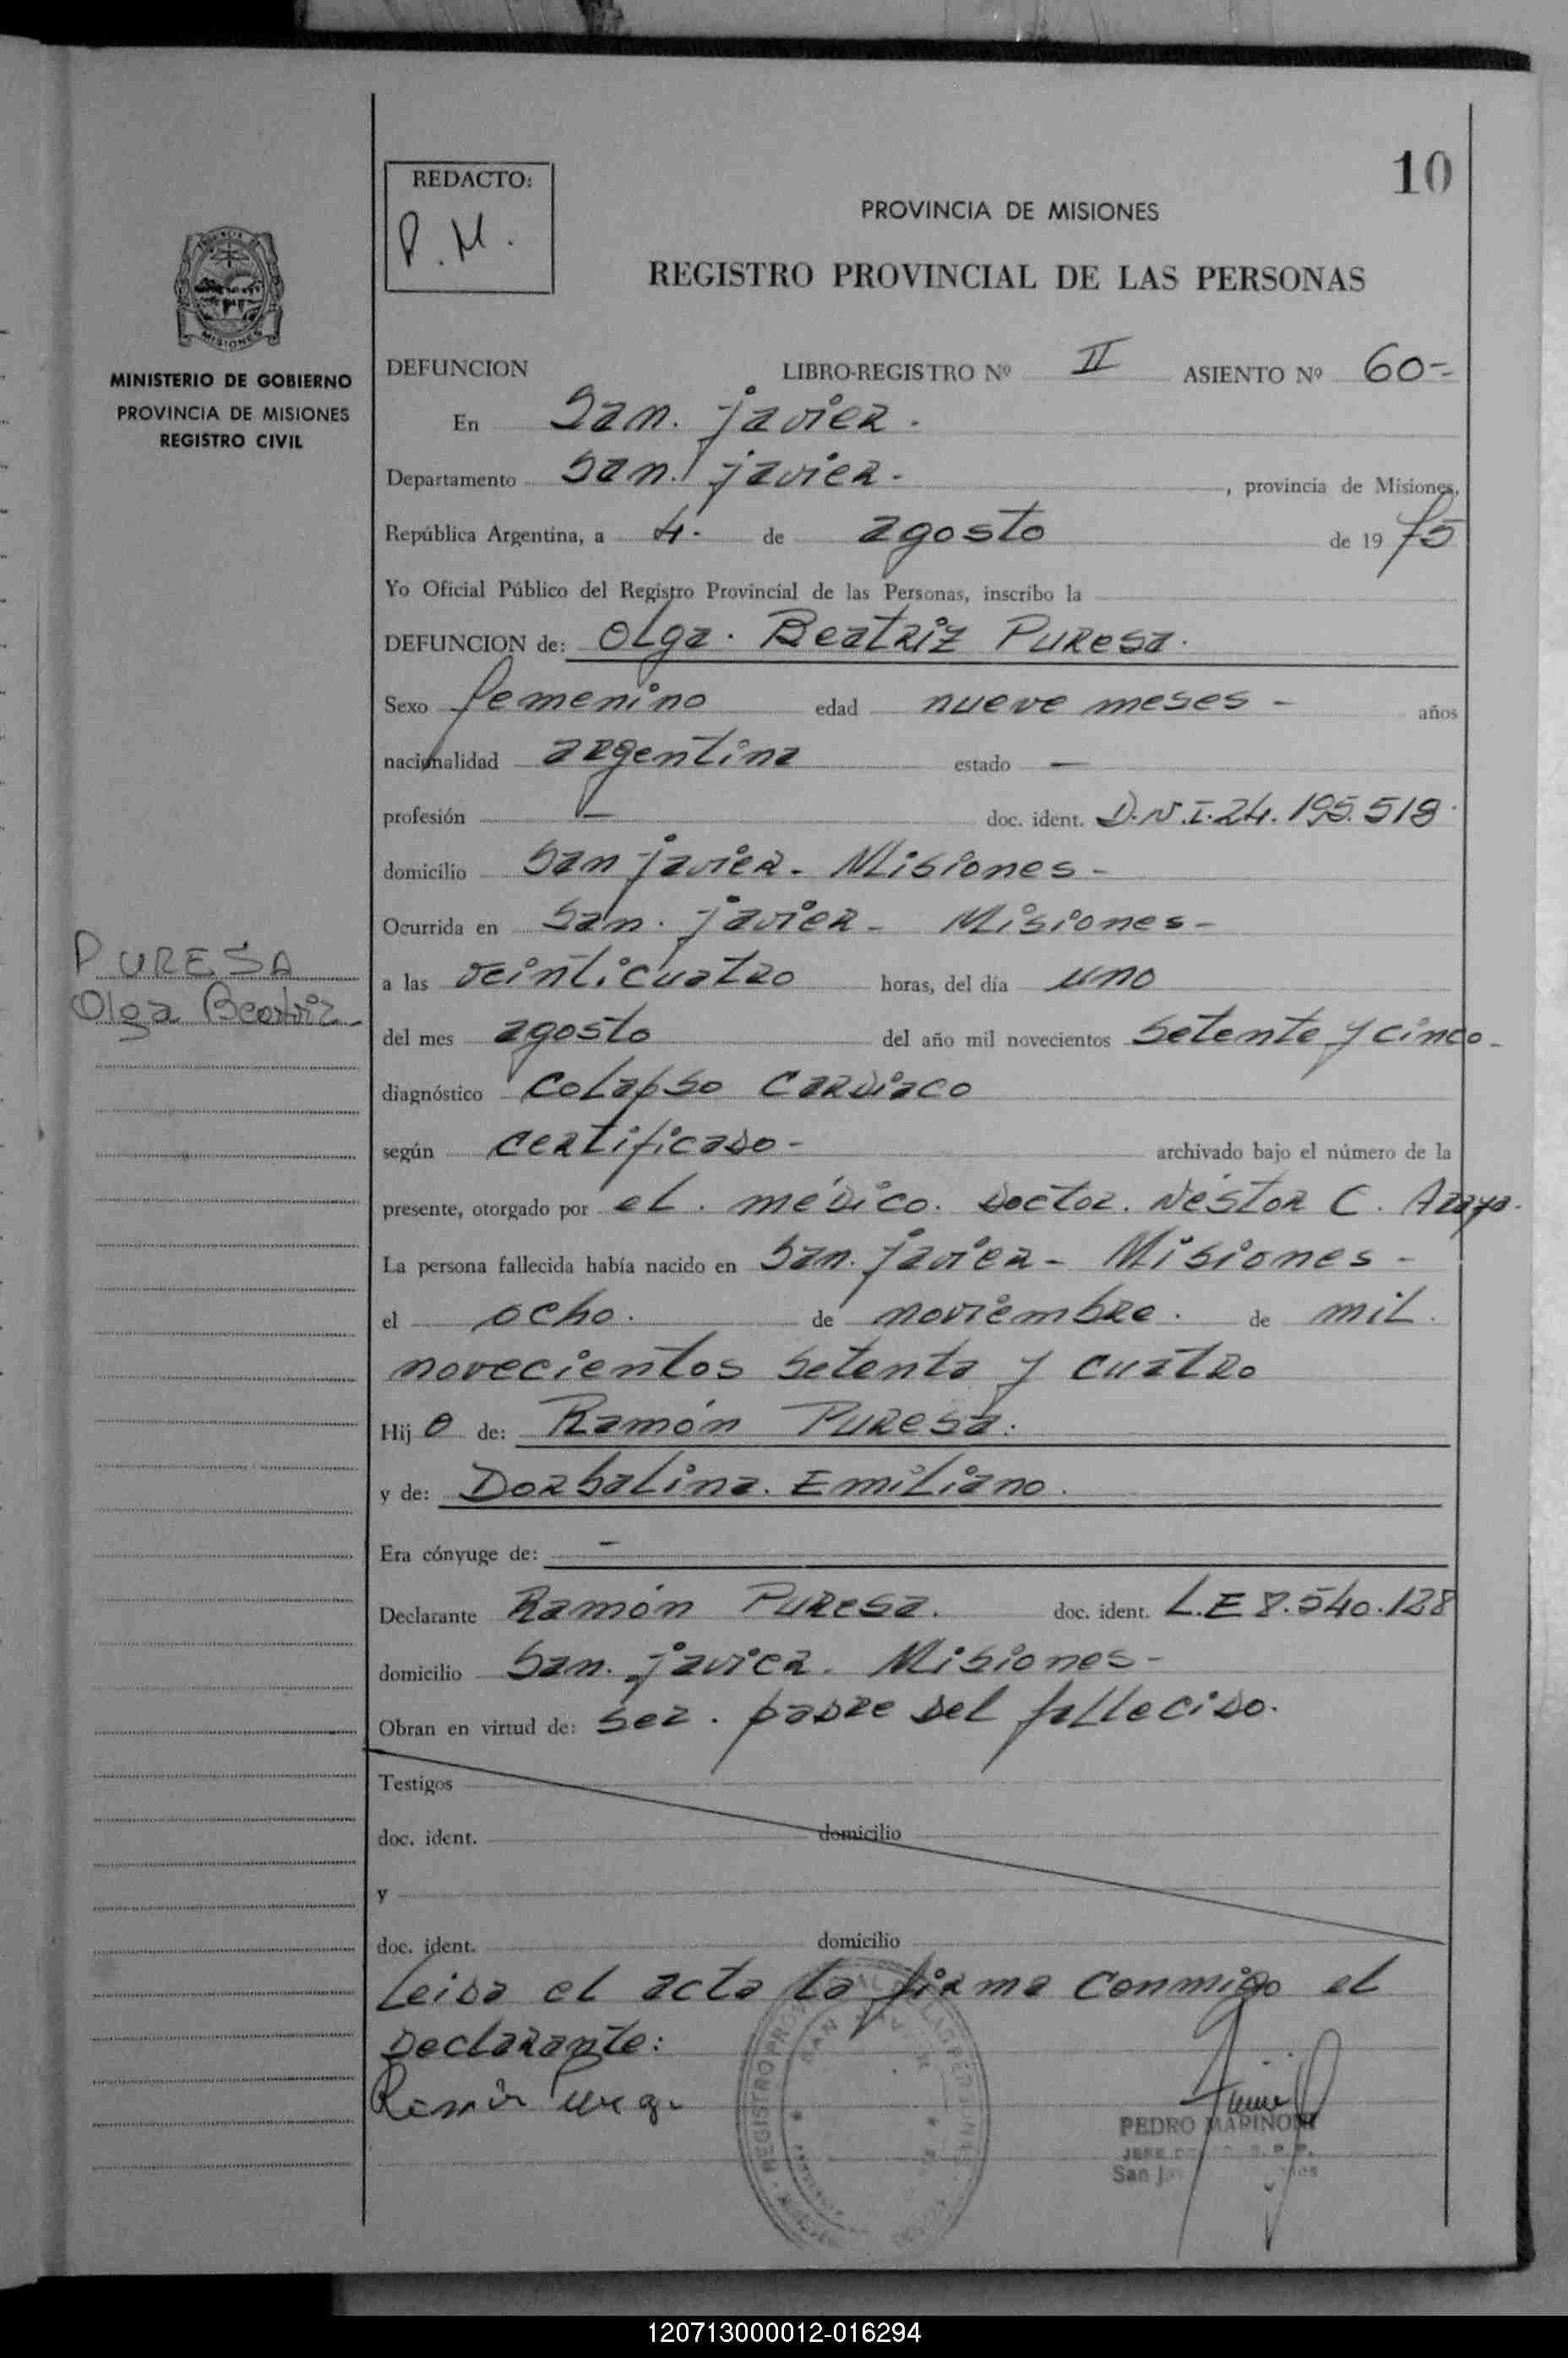 10
REDACTO:
P.M.
PROVINCIA DE MISIONES
REGISTRO PROVINCIAL DE LAS PERSONAS
MISIONES
MINISTERIO DE GOBIERNO
PROVINCIA DE MISIONES
REGISTRO CIVIL
DEFUNCION LIBRO-REGISTRO Nº II ASIENTO Nº 60-
En San. javier.
Departamento San. javier. , provincia de Misiones,
República Argentina, a 4. de agosto de 19 75
Yo Oficial Público del Registro Provincial de las Personas, inscribo la
DEFUNCION de: Olga. Beatriz Puresa.
Sexo femenino edad nueve meses - años
nacionalidad argentina estado —
profesión — doc. ident. D.N.I. 24.195.518.
domicilio San javier. Misiones -
Ocurrida en San. javier - Misiones -
a las veinticuatro horas, del día uno
del mes agosto del año mil novecientos setente y cinco -
diagnóstico colapso cardiaco
según certificado - archivado bajo el número de la
presente, otorgado por el. médico. Doctor. Néstor C. Araya.
La persona fallecida había nacido en San. javier - Misiones -
el ocho. de noviembre. de mil.
novecientos setenta y cuatro
Hij o de: Ramón Puresa.
y de: Dorsalina. Emiliano.
Era cónyuge de: -
Declarante Ramón Puresa. doc. ident. L.E 8.540.128
domicilio San. javier. Misiones -
Obran en virtud de: ser. padre del fallecido.
Testigos
doc. ident. domicilio
y
doc. ident. domicilio
Leida el acta la firma conmigo el
Declarante:
PURESA
Olga Beatriz -
REGISTRO
PEDRO MARINONI
San
120713000012-016294